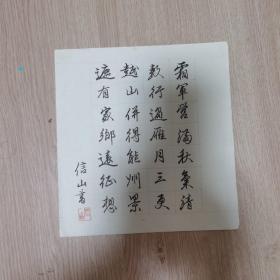 霜軍營滿秋氣清
数行過雁月三更
越山併得能州景
遮有家鄉遠征想
信山書